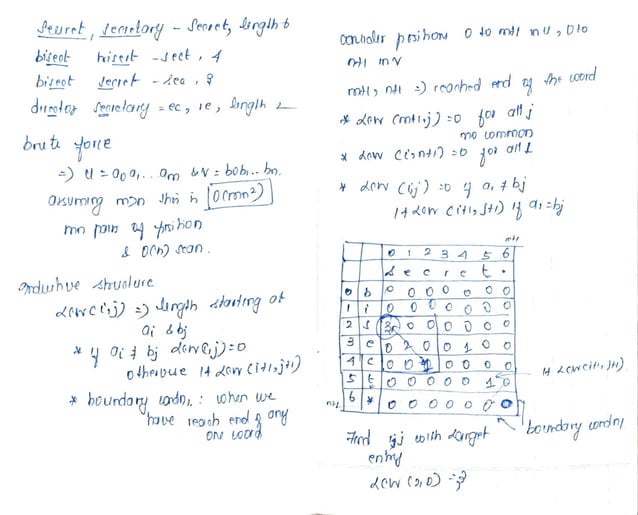 secret, secretary - secret, length 6
bisect trisect - sect, 4
bisect secret - sec, 3
director secretary = ec, re, length 2
brute force
=) u = a0 a1 ... am & v = b0 b1 ... bn.
assuming m>n this is O(mn²)
mn pair of position
& O(n) scan.
inductive structure
LCW(i,j) =) length starting at
ai & bj
* if ai ≠ bj LCW(i,j)=0
otherwise 1+ LCW(i+1,j+1)
* boundary condn, : when we
have reach end of any
one word
consider positions 0 to m+1 in U, 0 to
n+1 in V
m+1, n+1 =) reached end of the word
* LCW (m+1,j) =0 for all j
no common
* LCW (i,n+1) =0 for all i
* LCW (i,j) =0 if ai ≠ bj
1+ LCW (i+1, j+1) if ai=bj
m+1
0 1 2 3 4 5 6
s e c r e t .
0 b 0 0 0 0 0 0 0
1 i 0 0 0 0 0 0 0
2 s 3 0 0 0 0 0 0
3 e 0 2 0 0 1 0 0
4 c 0 0 1 0 0 0 0
5 t 0 0 0 0 0 1 0
n+1 6 * 0 0 0 0 0 0 0
1+ LCW(i+1, j+1)
boundary condn,
Find i,j with largest
entry
LCW (2,0) = 3